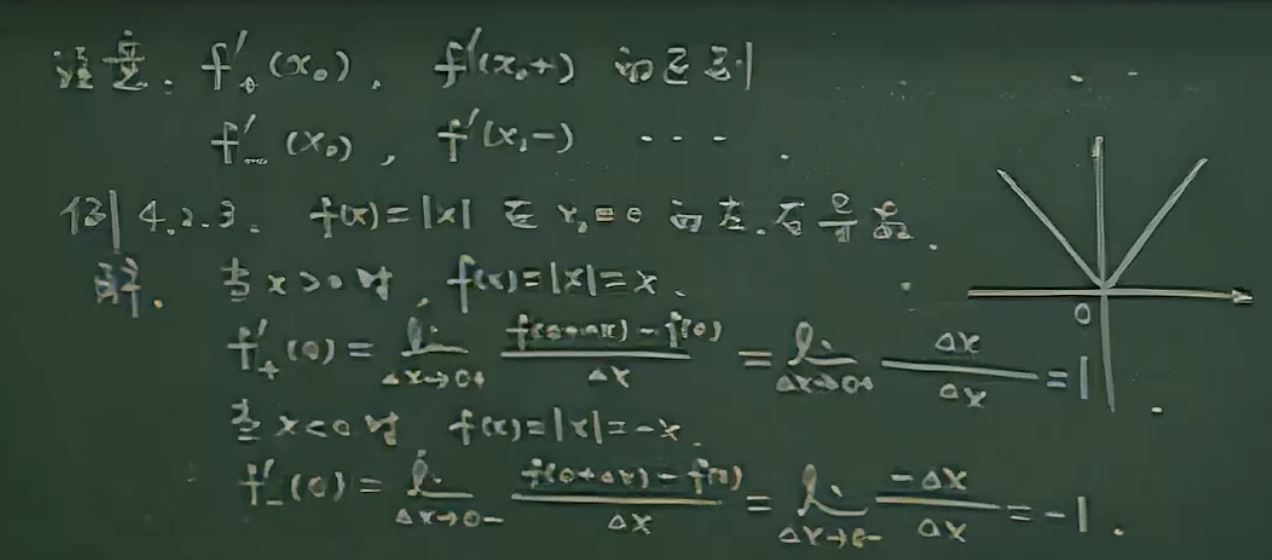 注意. f'₊(x₀), f'(x₀+) 的区别
f'₋(x₀), f'(x₀-) ....
例 4.2.3. f(x)=|x| 在 x₀=0 的左.右导数.
解. 当 x>0 时, f(x)=|x|=x.
f'₊(0) = lim_{Δx→0+} (f(0+Δx)-f(0))/Δx = lim_{Δx→0+} Δx/Δx = 1
当 x<0 时 f(x)=|x|=-x.
f'₋(0) = lim_{Δx→0-} (f(0+Δx)-f(0))/Δx = lim_{Δx→0-} -Δx/Δx = -1.
0